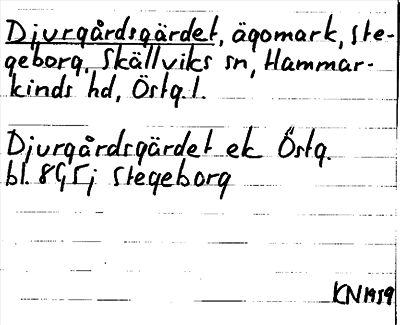 Djurgårdsgärdet, ägomark, Ste-
geborg, Skällviks sn, Hammar-
kinds hd, Östg.l.
Djurgårdsgärdet ek Östg.
bl. 8G5j Stegeborg
KN1959